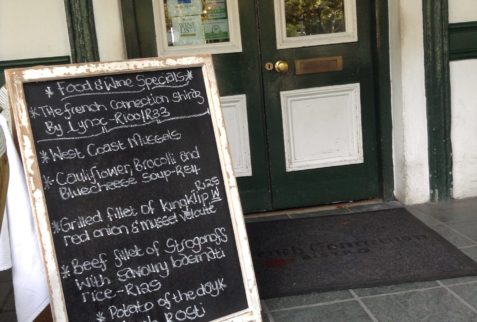 *Food & Wine Specials*
*The French Connection Shiraz
By Lynx - R100/R33
*West Coast Mussels
*Cauliflower, Brocolli and
Bluecheese Soup - R54
*Grilled fillet of Kingklip W R125
red onion & mussel veloute
*Beef fillet of Stroganoff
with savoury basmati
rice - R125
*Potato of the day*
Rosti
French Connection